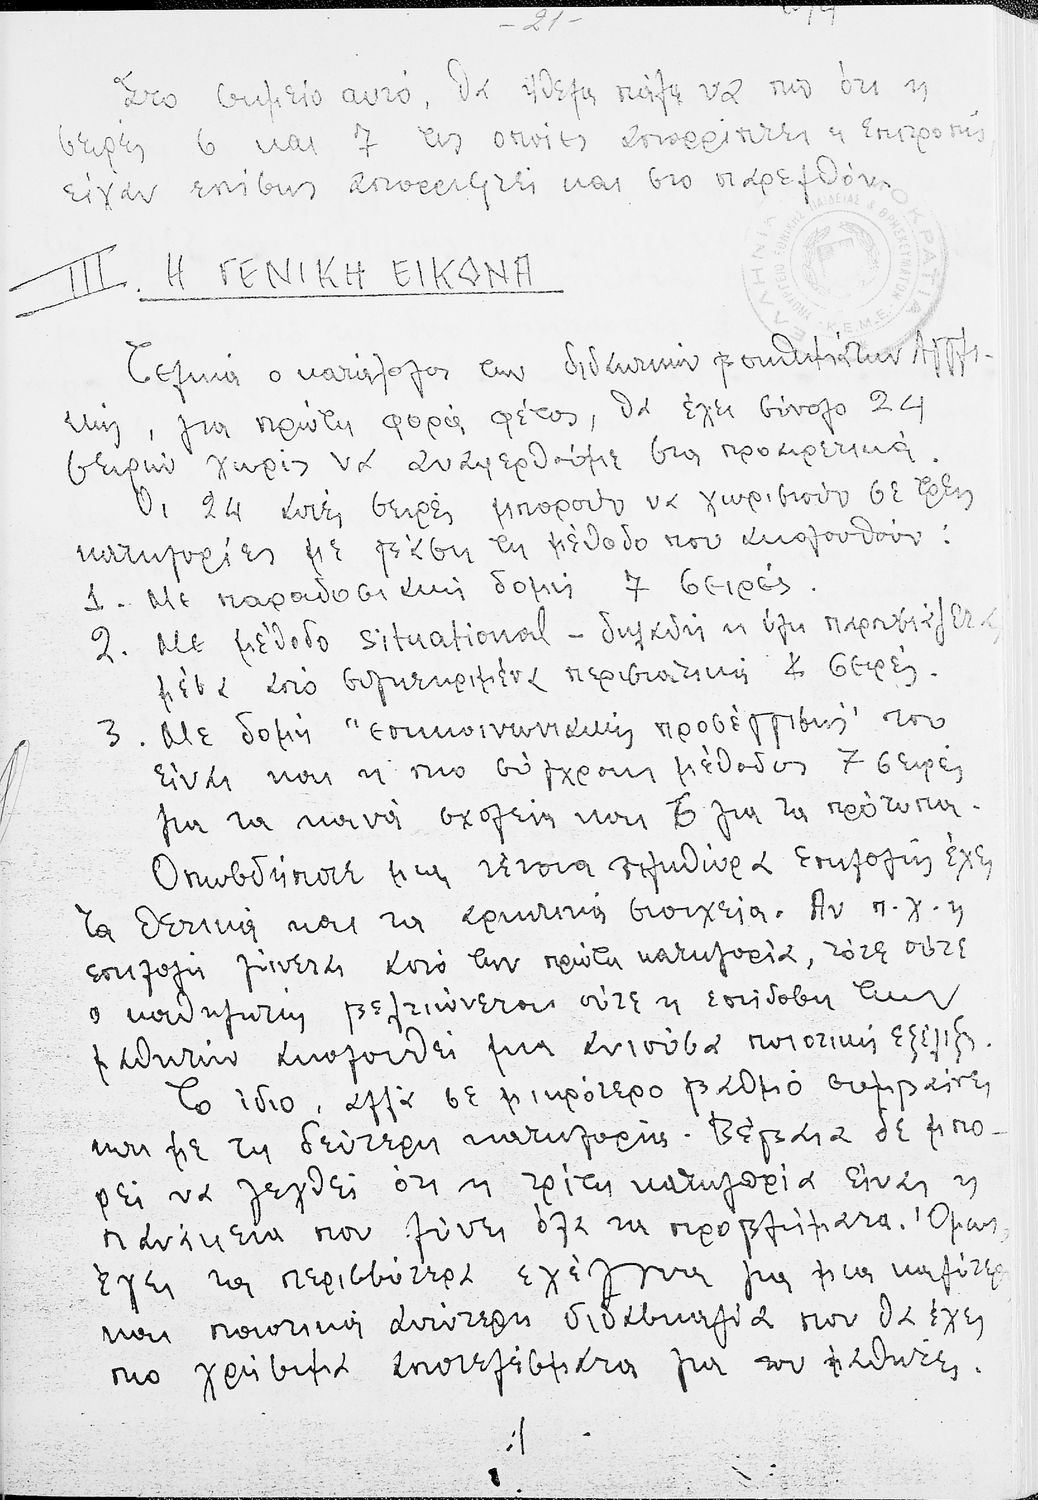 -21-
Στο σημείο αυτό, θα ήθελα πάλι να πω ότι η
σειρές 6 και 7 τις οποίες απορρίπτει η επιτροπής,
είχαν επίσης απορριφτεί και στο παρελθόν.
ΕΛΛΗΝΙΚΗ ΔΗΜΟΚΡΑΤΙΑ
ΥΠΟΥΡΓΕΙΟ ΕΘΝΙΚΗΣ ΠΑΙΔΕΙΑΣ & ΘΡΗΣΚΕΥΜΑΤΩΝ
Κ.Ε.Μ.Ε.
III. Η ΓΕΝΙΚΗ ΕΙΚΟΝΑ
Τελικά ο κατάλογος των διδακτικών βοηθημάτων Αγγλι-
κής, για πρώτη φορά φέτος, θα έχει σύνολο 24
σειρών χωρίς να αναφερθούμε στα προαιρετικά.
Οι 24 αυτές σειρές μπορούν να χωριστούν σε τρεις
κατηγορίες με βάση τη μέθοδο που ακολουθούν:
1. Με παραδοσιακή δομή 7 σειρές.
2. Με μέθοδο situational - δηλαδή η ύλη παρουσιάζεται
μέσα από συγκεκριμένα περιστατικά 4 σειρές.
3. Με δομή "επικοινωνιακής προσέγγισης" που
είναι και η πιο σύγχρονη μέθοδος 7 σειρές
για τα κοινά σχολεία και 6 για τα πρότυπα.
Οπωσδήποτε μια τέτοια πληθώρα επιλογής έχει
τα θετικά και τα αρνητικά στοιχεία. Αν π.χ. η
επιλογή γίνεται από την πρώτη κατηγορία, τότε ούτε
ο καθηγητής βελτιώνεται ούτε η επίδοση των
μαθητών ακολουθεί μια ανιούσα ποιοτική εξέλιξη.
Το ίδιο, αλλά σε μικρότερο βαθμό συμβαίνει
και με τη δεύτερη κατηγορία. Βέβαια δε μπο-
ρεί να λεχθεί ότι η τρίτη κατηγορία είναι η
πανάκεια που λύνει όλα τα προβλήματα. Όμως,
έχει τα περισσότερα εχέγγυα για μια καλύτερη
και ποιοτικά ανώτερη διδασκαλία που θα έχει
πιο χρήσιμα αποτελέσματα για του μαθητές.
./